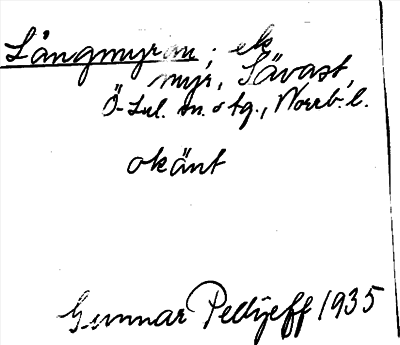 Långmyran; ek
myr, Sävast,
Ö-Lul. sn. o tg., Norrb. l.
okänt
Gunnar Pellijeff 1935